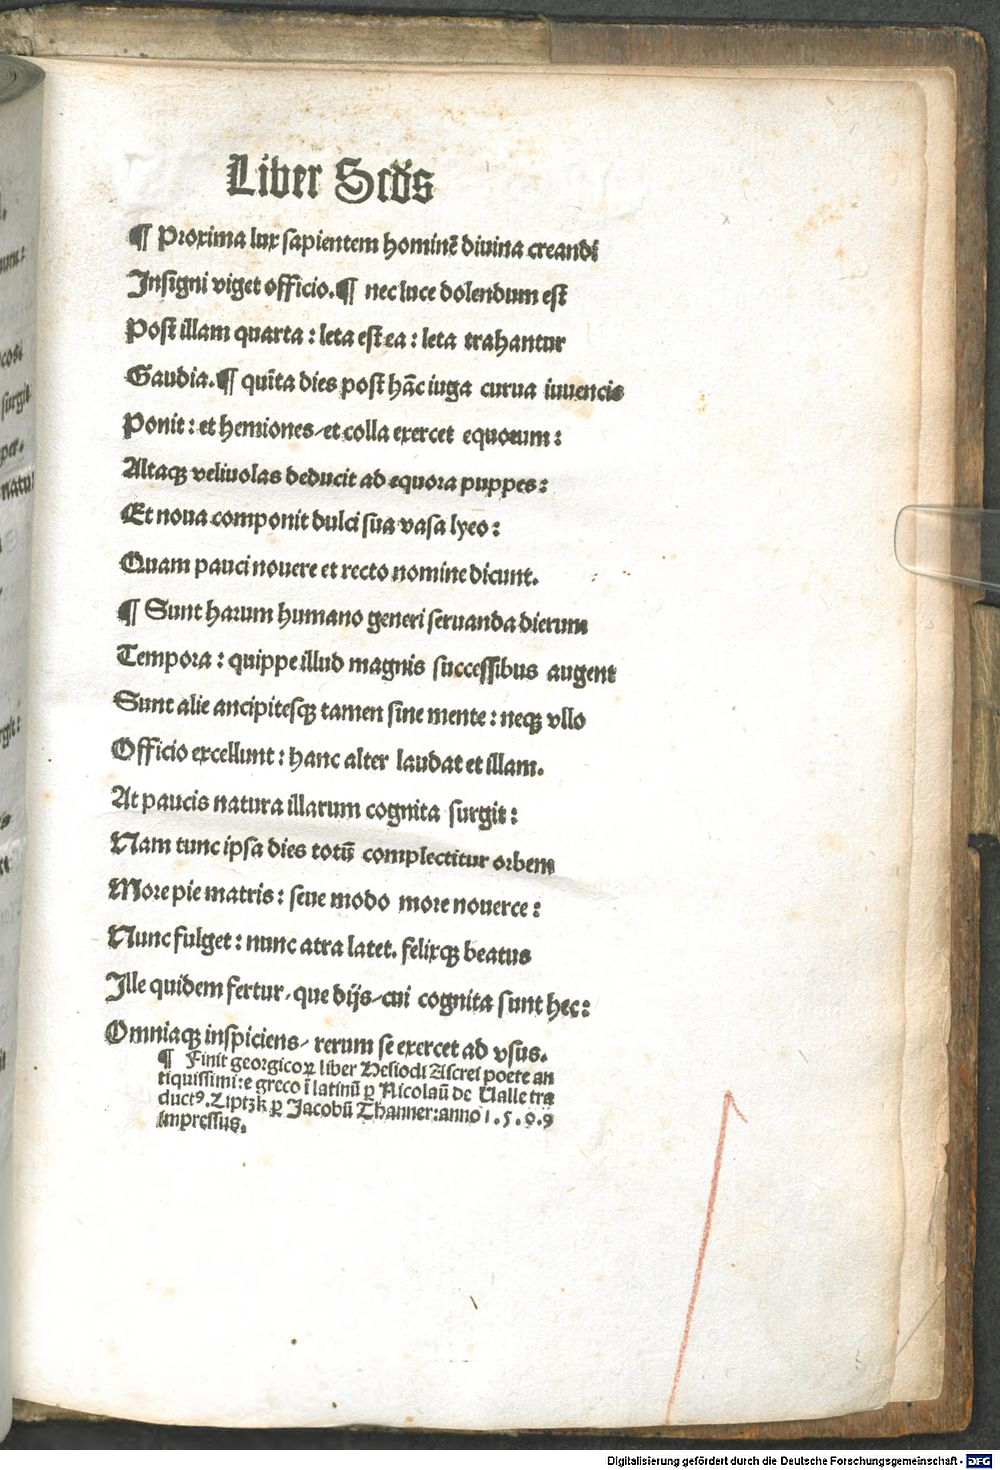 Liber Scďs
¶ Proxima lux sapientem hominē diuina creandi
Insigni viget officio.¶ nec luce dolendum est
Post illam quarta : leta est ea : leta trahantur
Gaudia.¶ quīta dies post hāc iuga curua iuuencis
Ponit : et hemiones/et colla exercet equorum :
Altaqꝫ veliuolas deducit ad equora puppes :
Et noua componit dulci sua vasa lyeo :
Quam pauci nouere et recto nomine dicunt.
¶ Sunt harum humano generi seruanda dierum
Tempora : quippe illud magnis successibus augent
Sunt alie ancipitesqꝫ tamen sine mente : neqꝫ vllo
Officio excellunt : hanc alter laudat et illam.
At paucis natura illarum cognita surgit :
Nam tunc ipsa dies totū complectitur orbem
More pie matris : seue modo more nouerce :
Nunc fulget : nunc atra latet. felixqꝫ beatus
Ille quidem fertur/que dijs/cui cognita sunt hec :
Omniaqꝫ inspiciens/ rerum se exercet ad vsus.
¶ Finit georgicoꝝ liber Hesiodi Ascrei poete an
tiquissimi : e greco ī latinū ꝑ Nicolaū de Ualle tra
ductꝰ. Liptzk ꝑ Jacobū Thanner : anno 1.5.0.9
impressus.
Digitalisierung gefördert durch die Deutsche Forschungsgemeinschaft - DFG